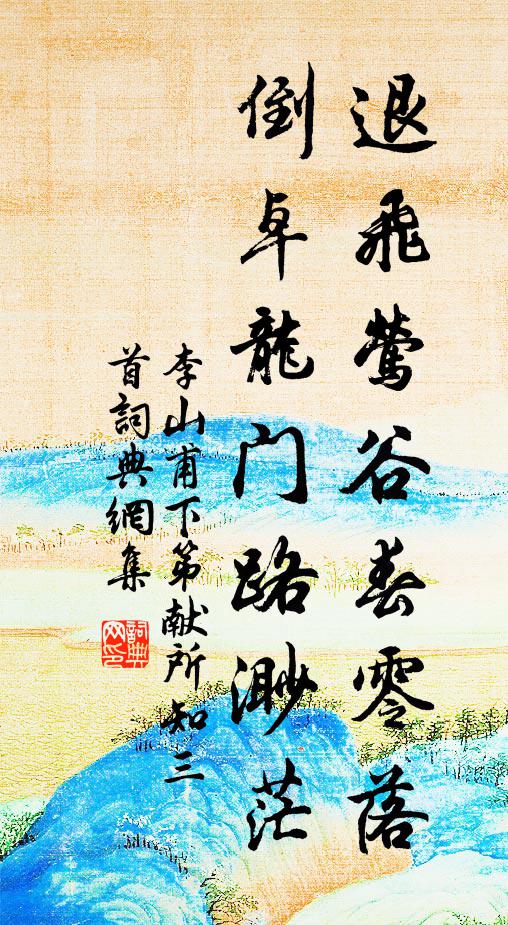 退飛鶯谷春零落
倒卓龍门路渺茫
李山甫下第献所知三
首詞典網集
詞典网印